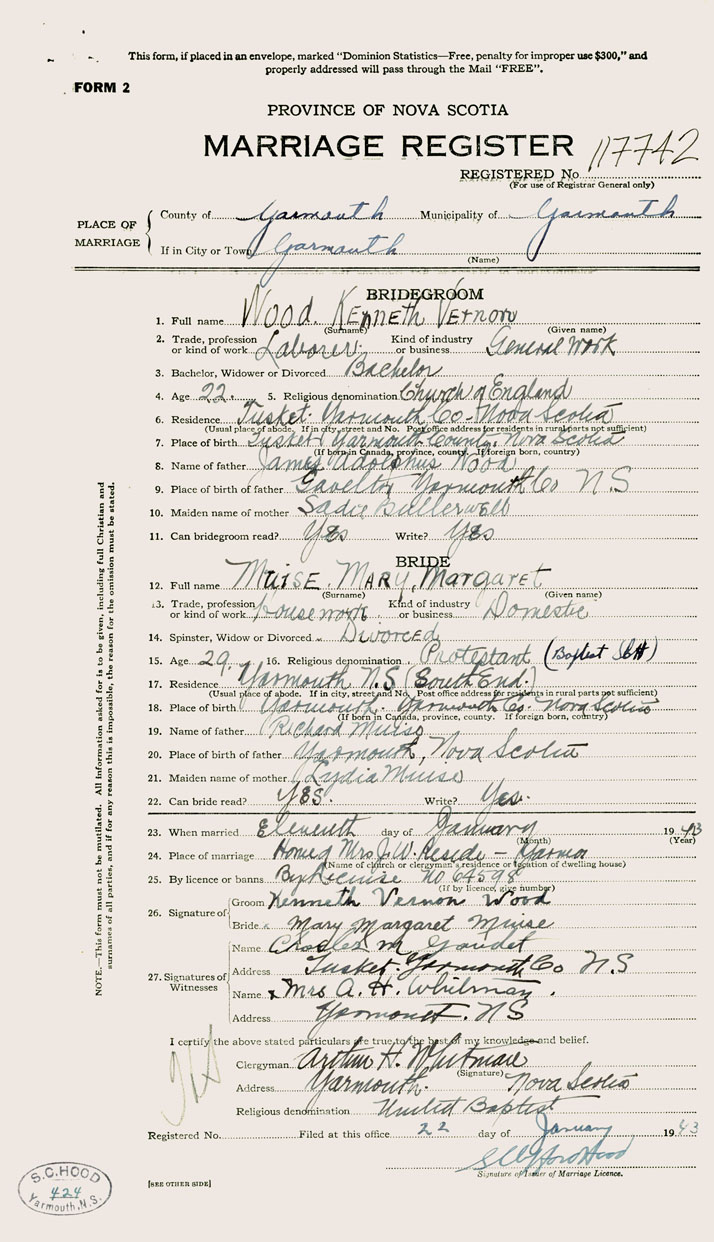 This form, if placed in an envelope, marked "Dominion Statistics—Free, penalty for improper use $300," and
properly addressed will pass through the Mail "FREE".
FORM 2
PROVINCE OF NOVA SCOTIA
MARRIAGE REGISTER
117742
REGISTERED No.
(For use of Registrar General only)
PLACE OF MARRIAGE
County of Yarmouth Municipality of Yarmouth
If in City or Town Yarmouth
(Name)
BRIDEGROOM
1. Full name Wood. Kenneth Vernon
(Surname) (Given name)
2. Trade, profession or kind of work Laborer. Kind of industry or business General Work
3. Bachelor, Widower or Divorced Bachelor
4. Age 22. 5. Religious denomination Church of England
6. Residence Tusket. Yarmouth Co. Nova Scotia
(Usual place of abode. If in city, street and No. Post office address for residents in rural parts not sufficient)
7. Place of birth Tusket Yarmouth County. Nova Scotia
(If born in Canada, province, county. If foreign born, country)
8. Name of father James Adolphus Wood
9. Place of birth of father Gavelton Yarmouth Co N S
10. Maiden name of mother Sadie
11. Can bridegroom read? Yes Write? Yes
BRIDE
12. Full name Muise. Mary, Margaret
(Surname) (Given name)
13. Trade, profession or kind of work housework Kind of industry or business Domestic
14. Spinster, Widow or Divorced Divorced
15. Age 29. 16. Religious denomination Protestant (Baptist SCH)
17. Residence Yarmouth N.S (South End.)
(Usual place of abode. If in city, street and No. Post office address for residents in rural parts not sufficient)
18. Place of birth Yarmouth. Yarmouth Co. Nova Scotia
(If born in Canada, province, county. If foreign born, country)
19. Name of father Richard Muise
20. Place of birth of father Yarmouth, Nova Scotia
21. Maiden name of mother Lydia Muise
22. Can bride read? Yes. Write? Yes.
23. When married Eleventh day of January 1943
(Month) (Year)
24. Place of marriage Home of Mrs J. W. —
(Name of church or clergyman's residence or location of dwelling house)
25. By licence or banns By Licence No 64598
(If by licence, give number)
26. Signature of
Groom Kenneth Vernon Wood
Bride Mary Margaret Muise
27. Signatures of Witnesses
Name Charles M. Gaudet
Address Tusket. Yarmouth Co N S
Name x Mrs A. H. Whitman.
Address Yarmouth. NS
I certify the above stated particulars are true to the best of my knowledge and belief.
Clergyman Arthur H. Whitman
(Signature)
Address Yarmouth. Nova Scotia
Religious denomination United Baptist
Registered No. Filed at this office 22 day of January 1943
Signature of Issuer of Marriage Licence.
[SEE OTHER SIDE]
S.C. HOOD
424
Yarmouth, N.S.
NOTE.—This form must not be mutilated. All Information asked for is to be given, including full Christian and
surnames of all parties, and if for any reason this is impossible, the reason for the omission must be stated.